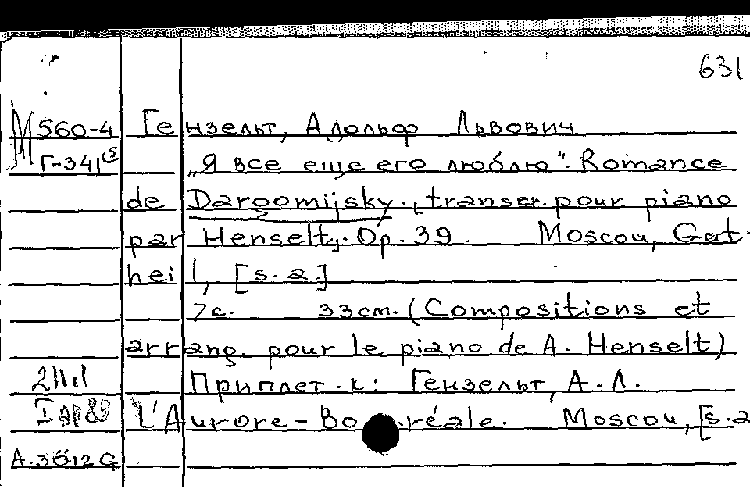 631
М 560-4 Гензельт, Адольф Львович
Г-341 "Я все еще его люблю". Romance
de Dargomijsky, transcr. pour piano
par Henselt. Op. 39. Moscou, Gut-
heil, [s.a.]
7с. 33см. (Compositions et
arrang. pour le piano de A. Henselt)
Приплет. к: Гензельт, А.Л.
L'Aurore-Boréale. Moscou, [s.a